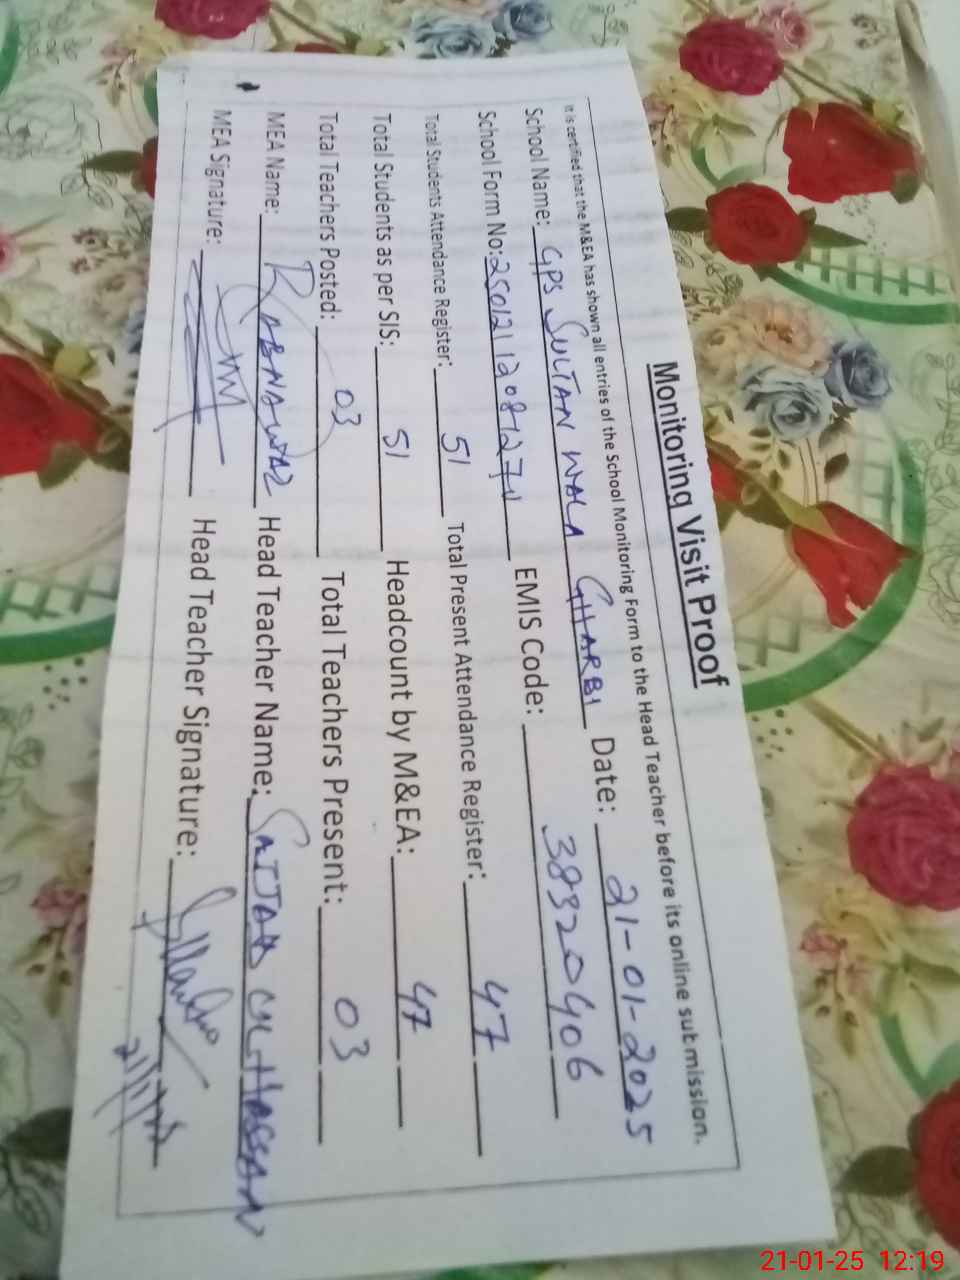 Monitoring Visit Proof
It is certified that the M&EA has shown all entries of the School Monitoring Form to the Head Teacher before its online submission.
School Name: GPS SULTAN WALA GHARBI Date: 21-01-2025
School Form No: EMIS Code: 38320406
Total Students Attendance Register: 51 Total Present Attendance Register: 47
Total Students as per SIS: 51 Headcount by M&EA: 47
Total Teachers Posted: 03 Total Teachers Present: 03
MEA Name: RABNAWAZ Head Teacher Name: SAJJAD UL HASSAN
MEA Signature: Head Teacher Signature:
21-01-25 12:19